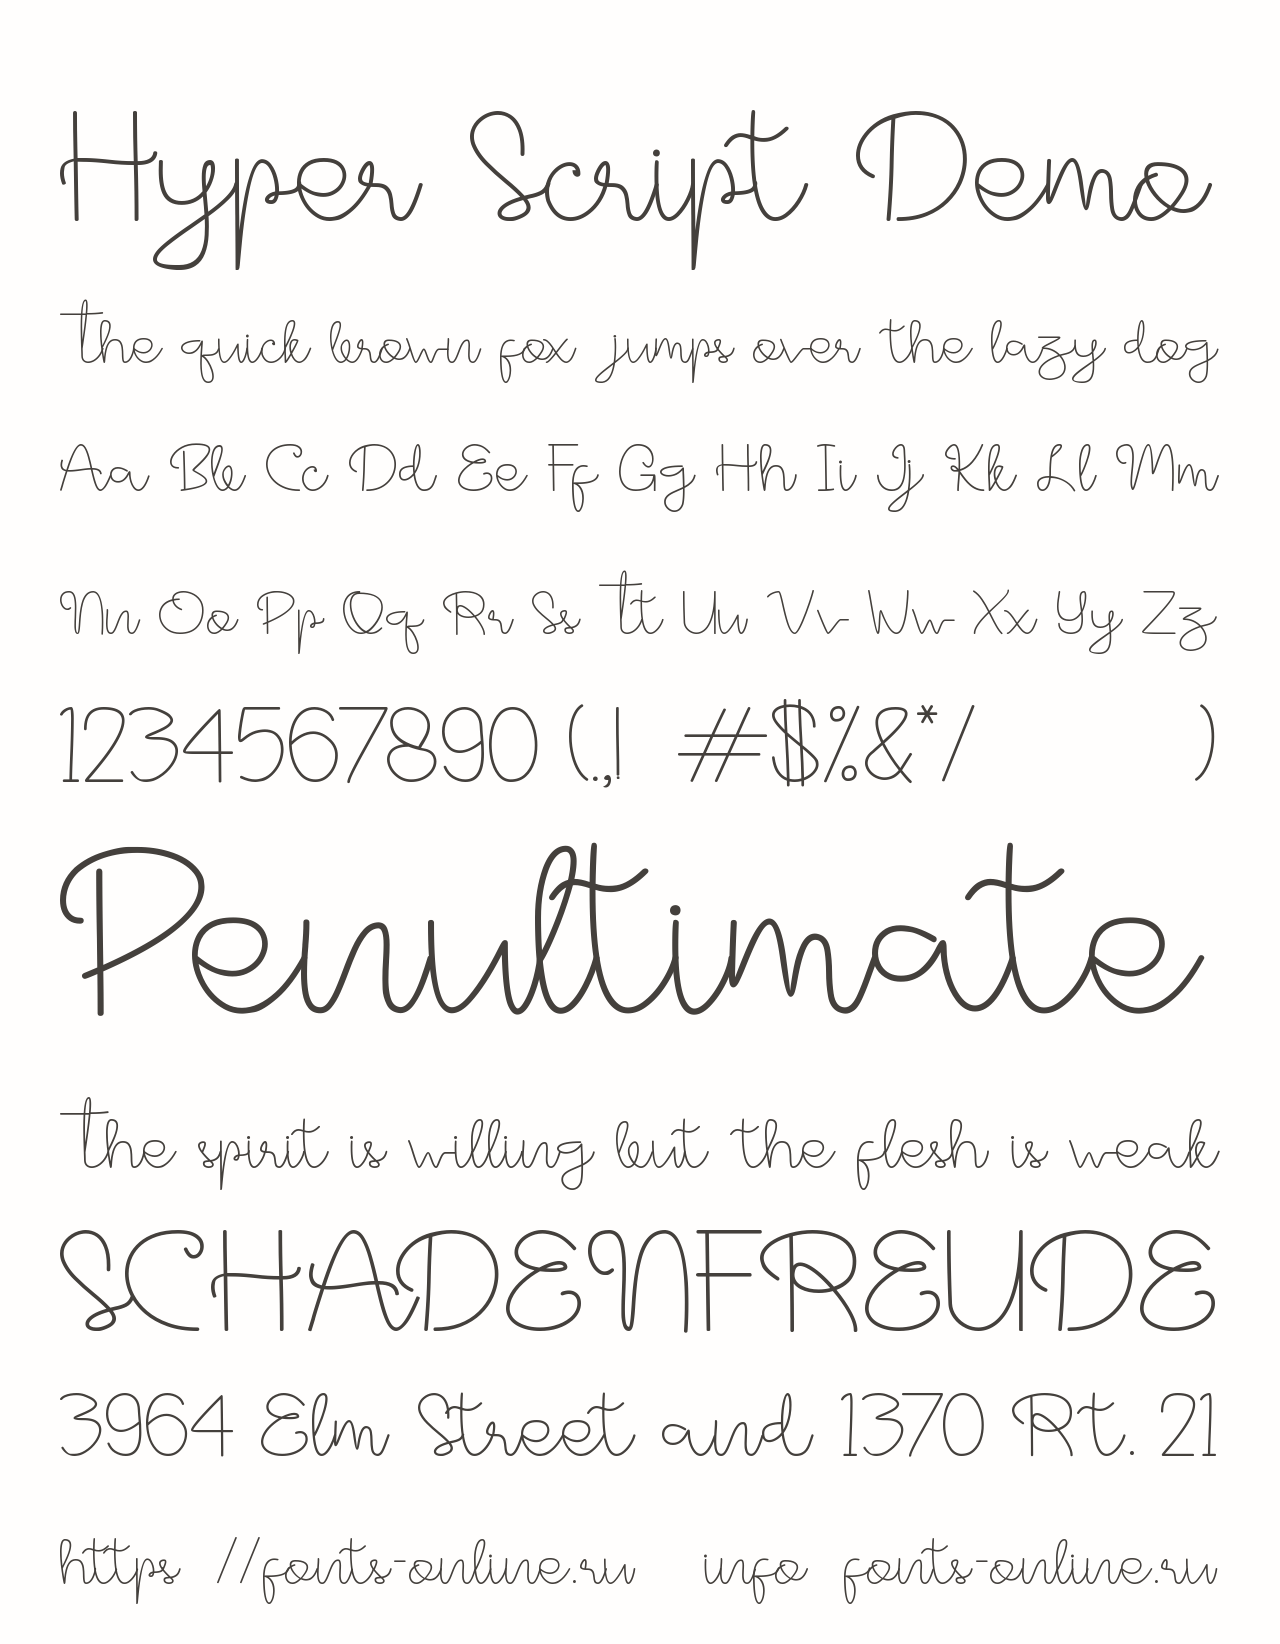 Hyper Script Demo
The quick brown fox jumps over the lazy dog
Aa Bb Cc Dd Ee Ff Gg Hh Ii Jj Kk Ll Mm
Nn Oo Pp Qq Rr Ss Tt Uu Vv Ww Xx Yy Zz
1234567890 (.,! #$%&*/ )
Penultimate
The spirit is willing but the flesh is weak
SCHADENFREUDE
3964 Elm Street and 1370 Rt. 21
https //fonts-online.ru info fonts-online.ru